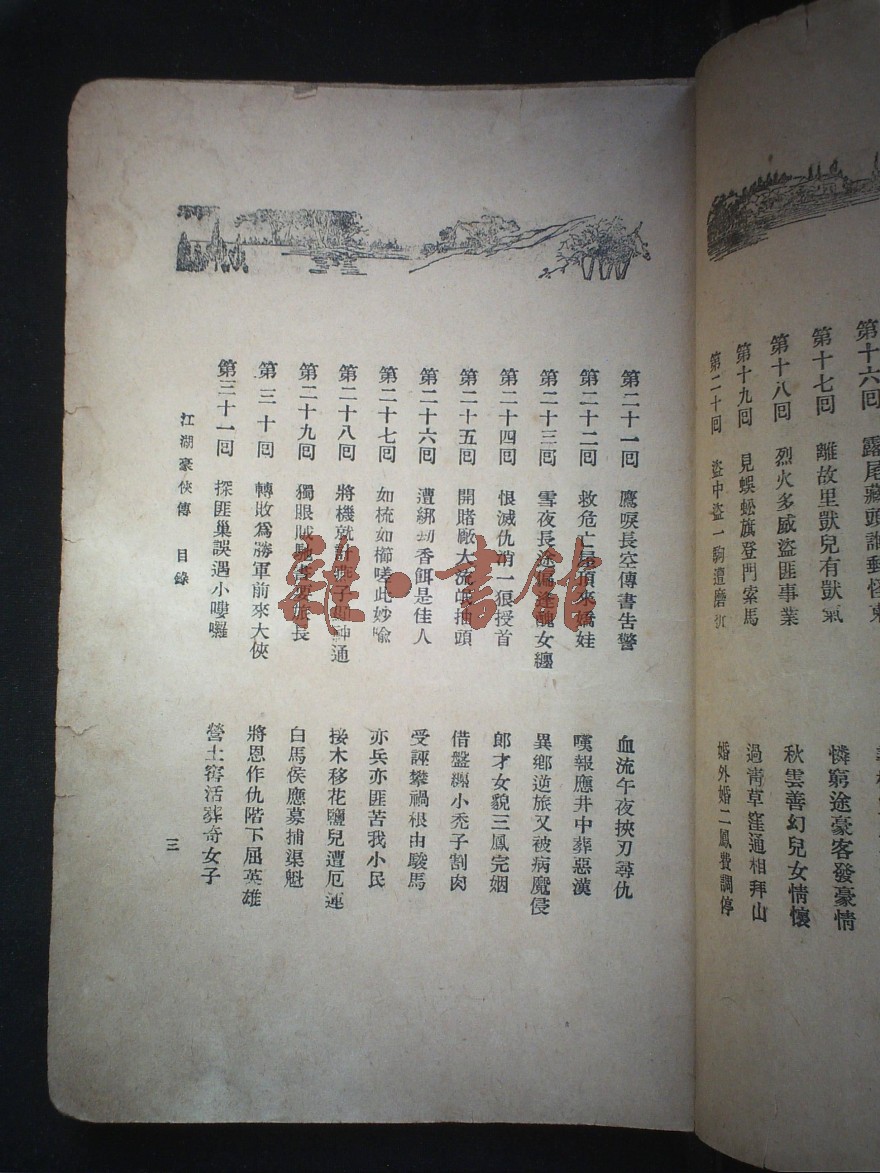 第十六回 露尾藏頭誰郵怪柬
第十七回 離故里獃兒有獃氣 憐窮途豪客發豪情
第十八回 烈火多威盜匪事業 秋雲善幻兒女情懷
第十九回 見蜈蚣旗登門索馬 過青草窪通相拜山
第二十回 盜中盜一駒遭磨折 婚外婚二鳳費調停
第二十一回 鷹唳長空傳書告警 血流午夜挾刃尋仇
第二十二回 救危亡屋頂來嬌娃 嘆報應井中葬惡漢
第二十三回 雪夜長途偏逢醜女纏 異鄉逆旅又被病魔侵
第二十四回 恨滅仇消一狼授首 郎才女貌三鳳完姻
第二十五回 開賭廠大流氓抽頭 借盤纏小禿子割肉
第二十六回 遭綁劫香餌是佳人 受誣攀禍根由駿馬
第二十七回 如梳如櫛嗟此妙喻 亦兵亦匪苦我小民
第二十八回 將機就計燕子神通 接木移花鹽兒遭厄運
第二十九回 獨眼賊馳書要旅長 白馬侯應募捕渠魁
第三十回 轉敗爲勝軍前來大俠 將恩作仇階下屈英雄
第三十一回 探匪巢誤遇小嘍囉 營土窖活葬奇女子
江湖豪俠傳 目錄 三
雜·書館